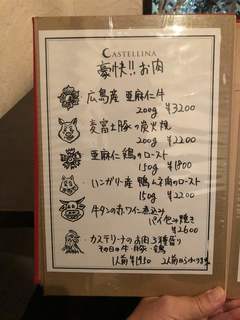 CASTELLINA
豪快!!お肉
広島産 亜麻仁牛
200g ¥3200
麦富士豚の炭火焼
200g ¥2200
亜麻仁鶏のロースト
150g ¥1800
ハンガリー産 鴨ムネ肉のロースト
150g ¥2200
牛タンの赤ワイン煮込み
パイ包み焼き
¥2600
カステリーナのお肉3種盛り
その日の牛・豚・鶏
1人前 ¥1950 2人前から